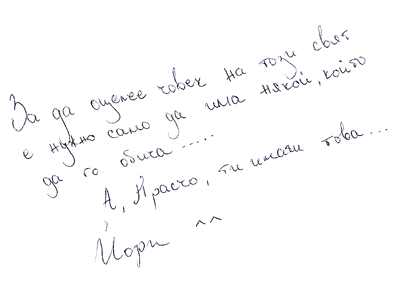 За да оцелее човек на този свят
е нужно само да има някой, който
да го обича .....
А, Красчо, ти имаш това...
Йори ^^